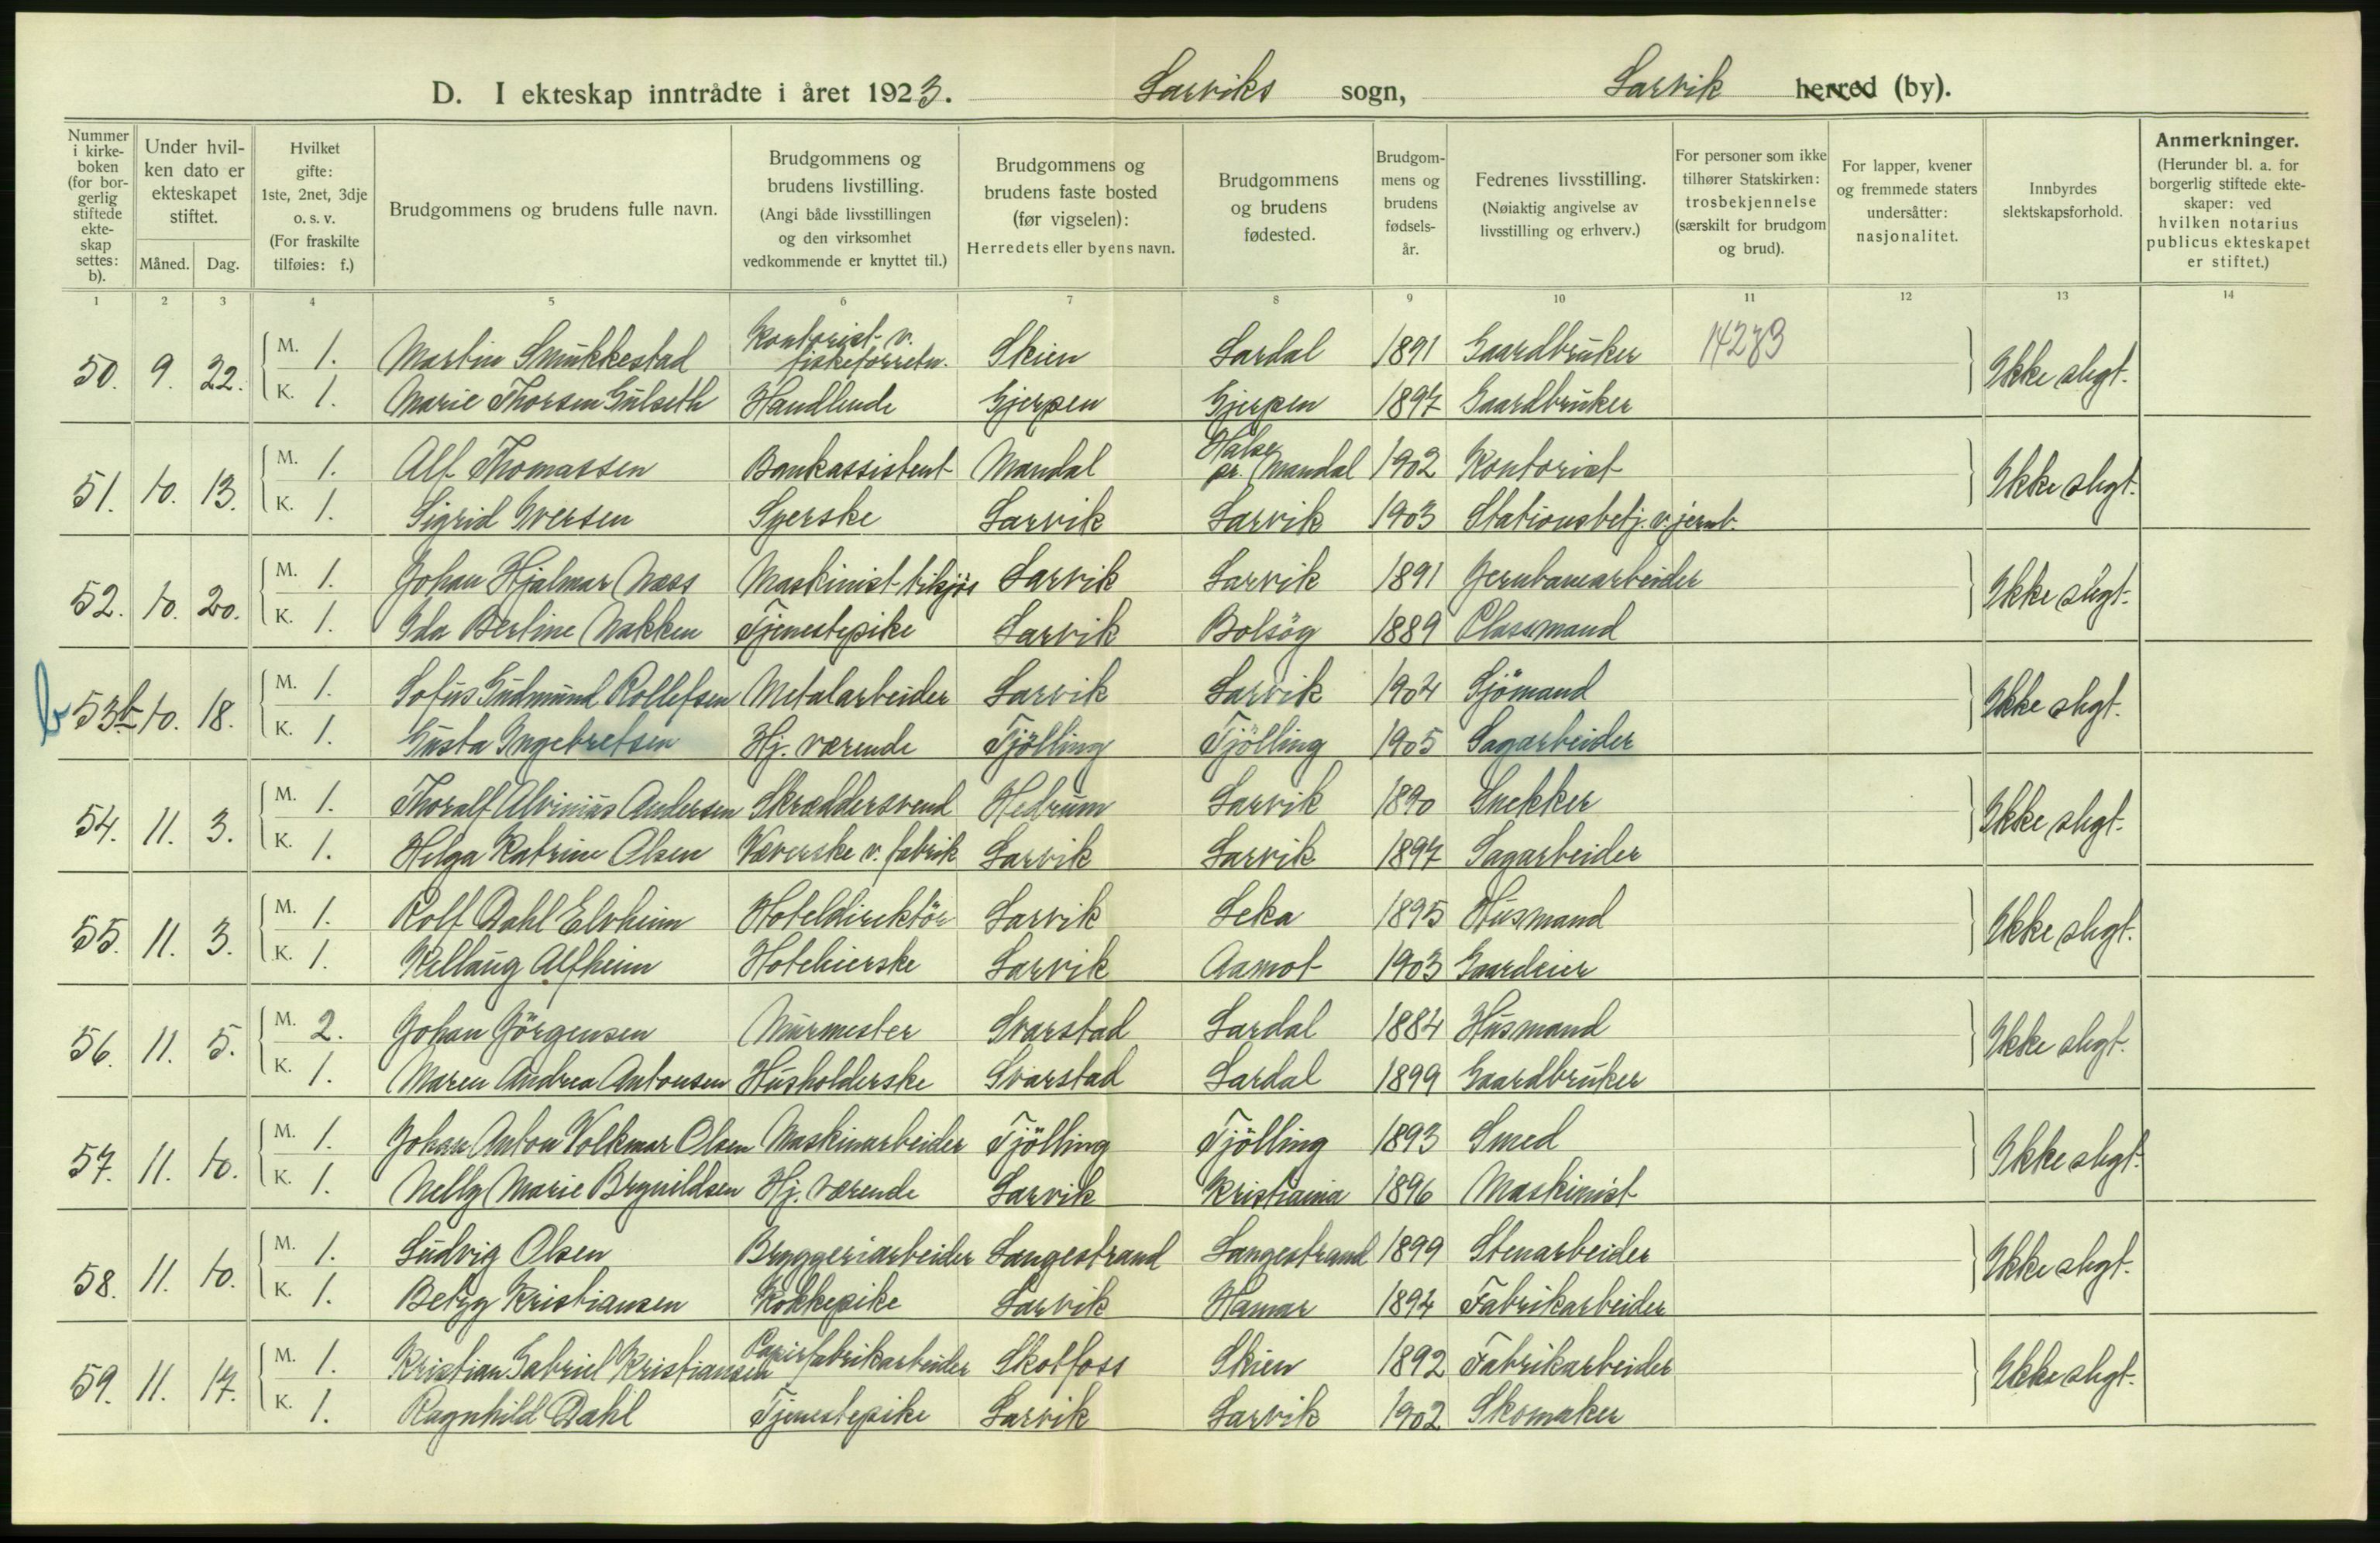 D. I ekteskap inntrådte i året 1923. Larviks sogn, Larvik herred (by).
Nummer i kirkeboken (for borgerlig stiftede ekteskap settes: b).
Under hvilken dato er ekteskapet stiftet.
Måned. Dag.
Hvilket gifte: 1ste, 2net, 3dje o. s. v. (For fraskilte tilføies: f.)
Brudgommens og brudens fulle navn.
Brudgommens og brudens livstilling. (Angi både livsstillingen og den virksomhet vedkommende er knyttet til.)
Brudgommens og brudens faste bosted (før vigselen): Herredets eller byens navn.
Brudgommens og brudens fødested.
Brudgommens og brudens fødsels-år.
Fedrenes livsstilling. (Nøiaktig angivelse av livsstilling og erhverv.)
For personer som ikke tilhører Statskirken: trosbekjennelse (særskilt for brudgom og brud).
For lapper, kvener og fremmede staters undersåtter: nasjonalitet.
Innbyrdes slektskapsforhold.
Anmerkninger. (Herunder bl. a. for borgerlig stiftede ekteskaper: ved hvilken notarius publicus ekteskapet er stiftet.)
1 2 3 4 5 6 7 8 9 10 11 12 13 14
50. 9. 22. M. 1. Martin Smukkestad Kontorist v. fiskeforretn. Skien Lardal 1891 Gaardbruker 14283 Ikke slegt.
K. 1. Marie Thorsen Gulseth Handlende Gjerpen Gjerpen 1897 Gaardbruker
51. 10. 13. M. 1. Alf Thomassen Bankassistent Mandal Halse pr. Mandal 1902 Kontorist Ikke slegt.
K. 1. Sigrid Iversen Syerske Larvik Larvik 1903 Stationsbetj. v. jernb.
52. 10. 20. M. 1. Johan Hjalmar Næss Maskinist tilsjøs Larvik Larvik 1891 Jernbanearbeider Ikke slegt.
K. 1. Ida Berline Nakken Tjenestepike Larvik Bolsöy 1889 Plassmand
b 53b 10. 18. M. 1. Sofus Gudmund Rollefsen Metalarbeider Larvik Larvik 1904 Sjömand Ikke slegt.
K. 1. Gusta Ingebretsen Hj. værende Tjölling Tjölling 1905 Sagarbeider
54. 11. 3. M. 1. Thoralf Alvinius Andersen Skræddersvend Hedrum Larvik 1890 Snekker Ikke slegt.
K. 1. Helga Katrine Olsen Væverske v. fabrik Larvik Larvik 1897 Sagarbeider
55. 11. 3. M. 1. Rolf Dahl Elvheim Hoteldirektör Larvik Leka 1895 Husmand Ikke slegt.
K. 1. Kellaug Alfheim Hoteleierske Larvik Aamot 1903 Gaardeier
56. 11. 5. M. 2. Johan Jörgensen Murmester Svarstad Lardal 1884 Husmand Ikke slegt.
K. 1. Maren Andrea Antonsen Husholderske Svarstad Lardal 1899 Gaardbruker
57. 11. 10. M. 1. Johan Anton Volkmar Olsen Maskinarbeider Tjölling Tjölling 1893 Smed Ikke slegt.
K. 1. Nelly Marie Brynildsen Hj. værende Larvik Kristiania 1896 Maskinist
58. 11. 10. M. 1. Ludvig Olsen Bryggeriarbeider Langestrand Langestrand 1899 Stenarbeider Ikke slegt.
K. 1. Betzy Kristiansen Kokkepike Larvik Hamar 1894 Fabrikarbeider
59. 11. 17. M. 1. Kristian Gabriel Kristiansen Papirfabrikarbeider Skotfoss Skien 1892 Fabrikarbeider Ikke slegt.
K. 1. Ragnhild Dahl Tjenestepike Larvik Larvik 1902 Skomaker